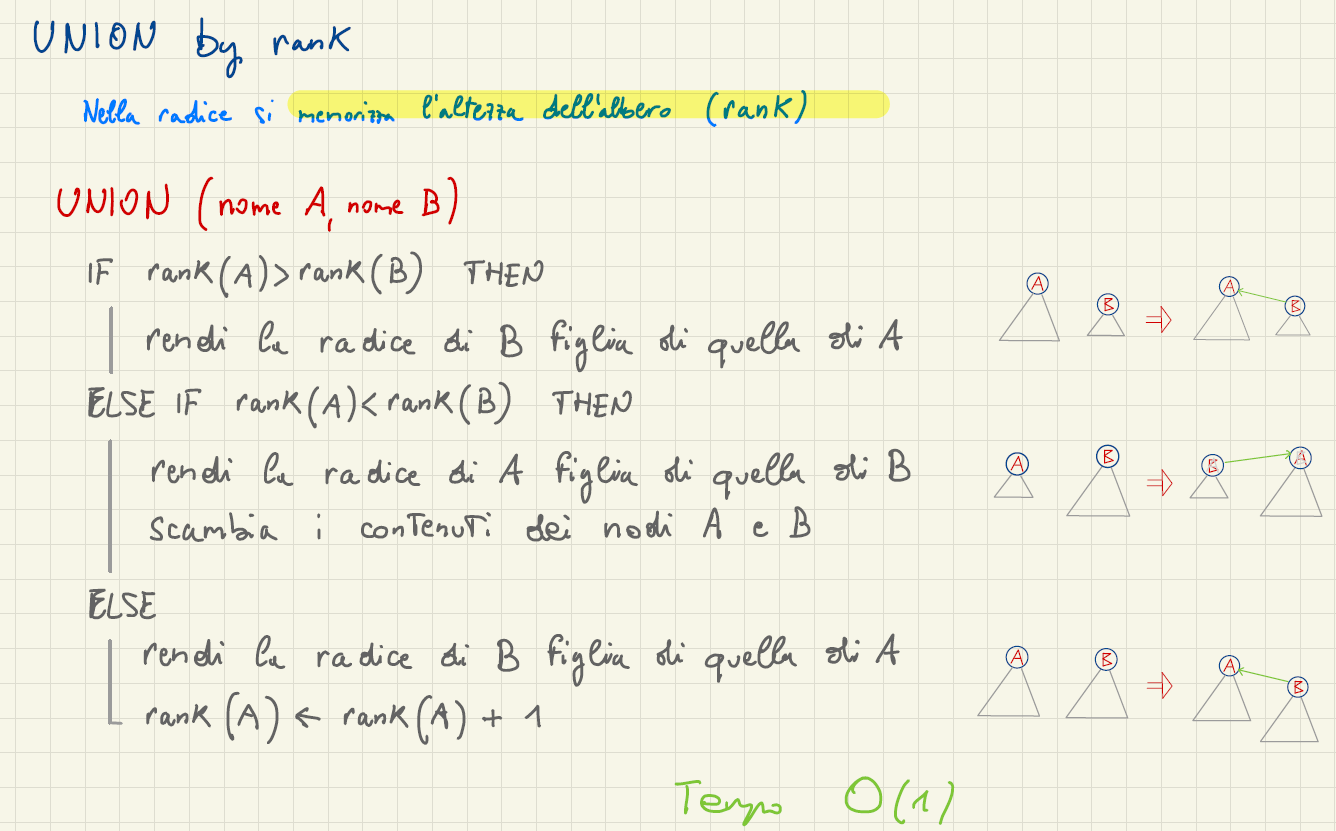 UNION by rank
Nella radice si memorizza l'altezza dell'albero (rank)
UNION (nome A, nome B)
IF rank(A)>rank(B) THEN
rendi la radice di B figlia di quella di A
A B ⇒ A B
ELSE IF rank(A)<rank(B) THEN
rendi la radice di A figlia di quella di B
A B ⇒ B A
scambia i contenuti dei nodi A e B
ELSE
rendi la radice di B figlia di quella di A
A B ⇒ A B
rank(A) ← rank(A) + 1
Tempo O(1)